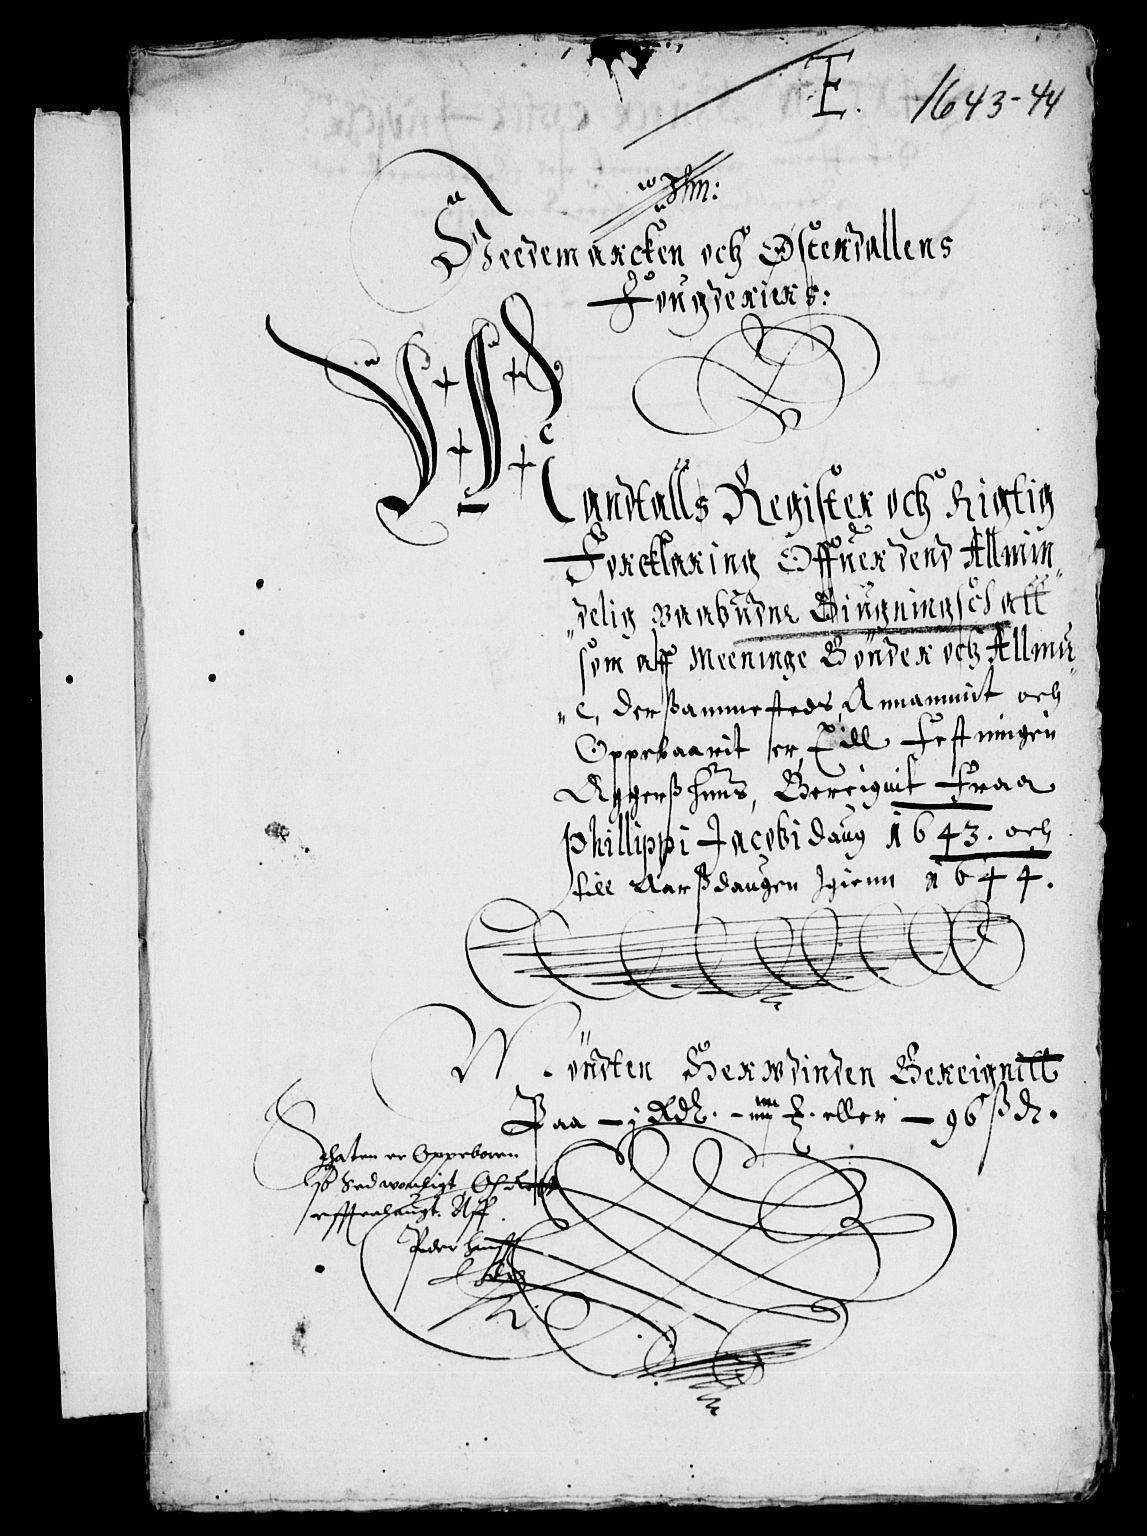 E. 1643-44
Hedemarcken och Østerdallens
Fougderiers:
Mandtalls Register och Rigtig
Forcklaring Offuer dend Allmin
delig Paabudne Biugningschatt
som aff Meeninge Bønder och Allmu
e, dersammesteds, Annammit och
Oppebaarit er, Till Festningen
Aggershuus, Bereignit Fraa
Phillippi Jacobi daug 1643. och
till Aarsdaugen Igienn 1644.
Möndten Herwdinden Bereignitt
Paa - j Rdl. - eller - 96 sk.
Schaten er Oppeboren
effterlaugt. Aff
Peder